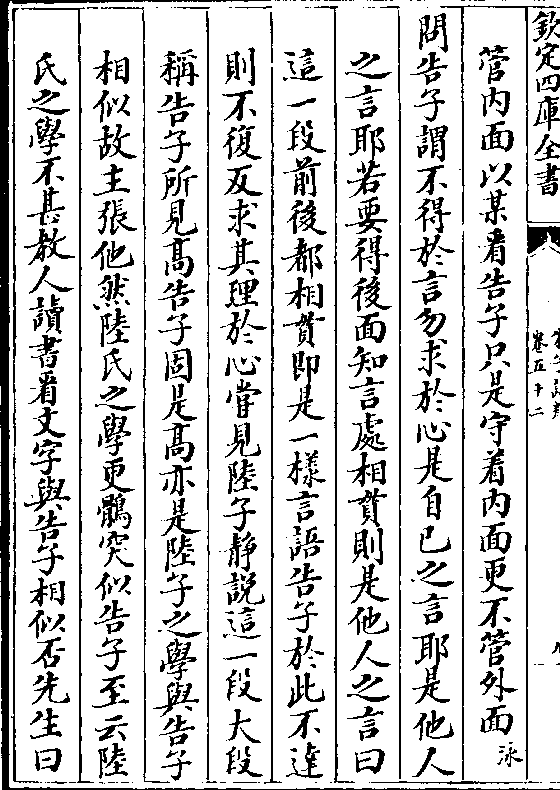 欽定四庫全書
卷五十二
管内面以某看告子只是守着内面更不管外面 泳
問告子謂不得於言勿求於心是自己之言耶是他人
之言耶若要得後面知言處相貫則是他人之言曰
這一段前後都相貫即是一樣言語告子於此不達
則不復反求其理於心嘗見陸子靜説這一段大段
稱告子所見髙告子固是髙亦是陸子之學與告子
相似故主張他然陸氏之學更鶻突似告子至云陸
氏之學不甚教人讀書看文字與告子相似否先生曰